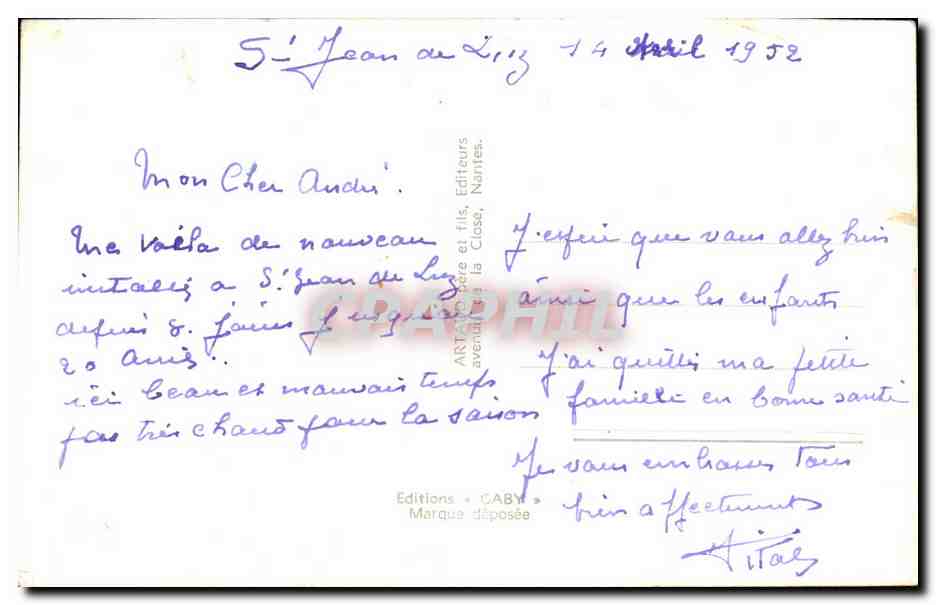 St Jean de Luz 14 Avril 1952
Mon Cher André.
Me voila de nouveau
installé a St Jean de Luz
depuis 8 jours jusqu'au
20 Avril..
ici beau et mauvais temps
pas très chaud pour la saison
J'espère que vous allez bien
ainsi que les enfants
J'ai quitté ma petite
famille en bonne santé
Je vous embrasse Tous
bien affectement
Vital
ARTAUD père et fils, Editeurs
avenue de la Close, Nantes.
Editions « GABY »
Marque déposée
CPAPHIL